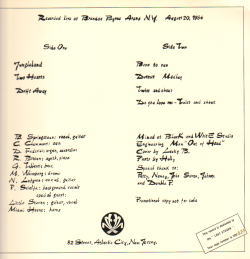 Recorded live at Brendan Byrne Arena N.Y. August 20, 1984
Side One
Jungleland
Two Hearts
Drift Away
Side Two
Born to run
Detroit Medley
Twist and shout
Do you love me - Twist and shout
B. Springsteen: vocal, guitar
C. Clemmons: sax
D. Federici: organ, accordion
R. Bittan: synth, piano
G. Tallent: bass
M. Weinberg: drums
N. Lofgren: vocal, guitar
P. Scialfa: background vocals
special guest:
Little Steven: guitar, vocal
Miami Horns: horns
Mixed at Black and White Studio
Engineering Man "Out of Head"
Cover by Lucky B.
Parts by Hub,
Special thanks to:
Patty, Nancy, Steve, Tatum
and Double P.
Promotional copy not for sale
82 Street, Atlantic City, New Jersey.